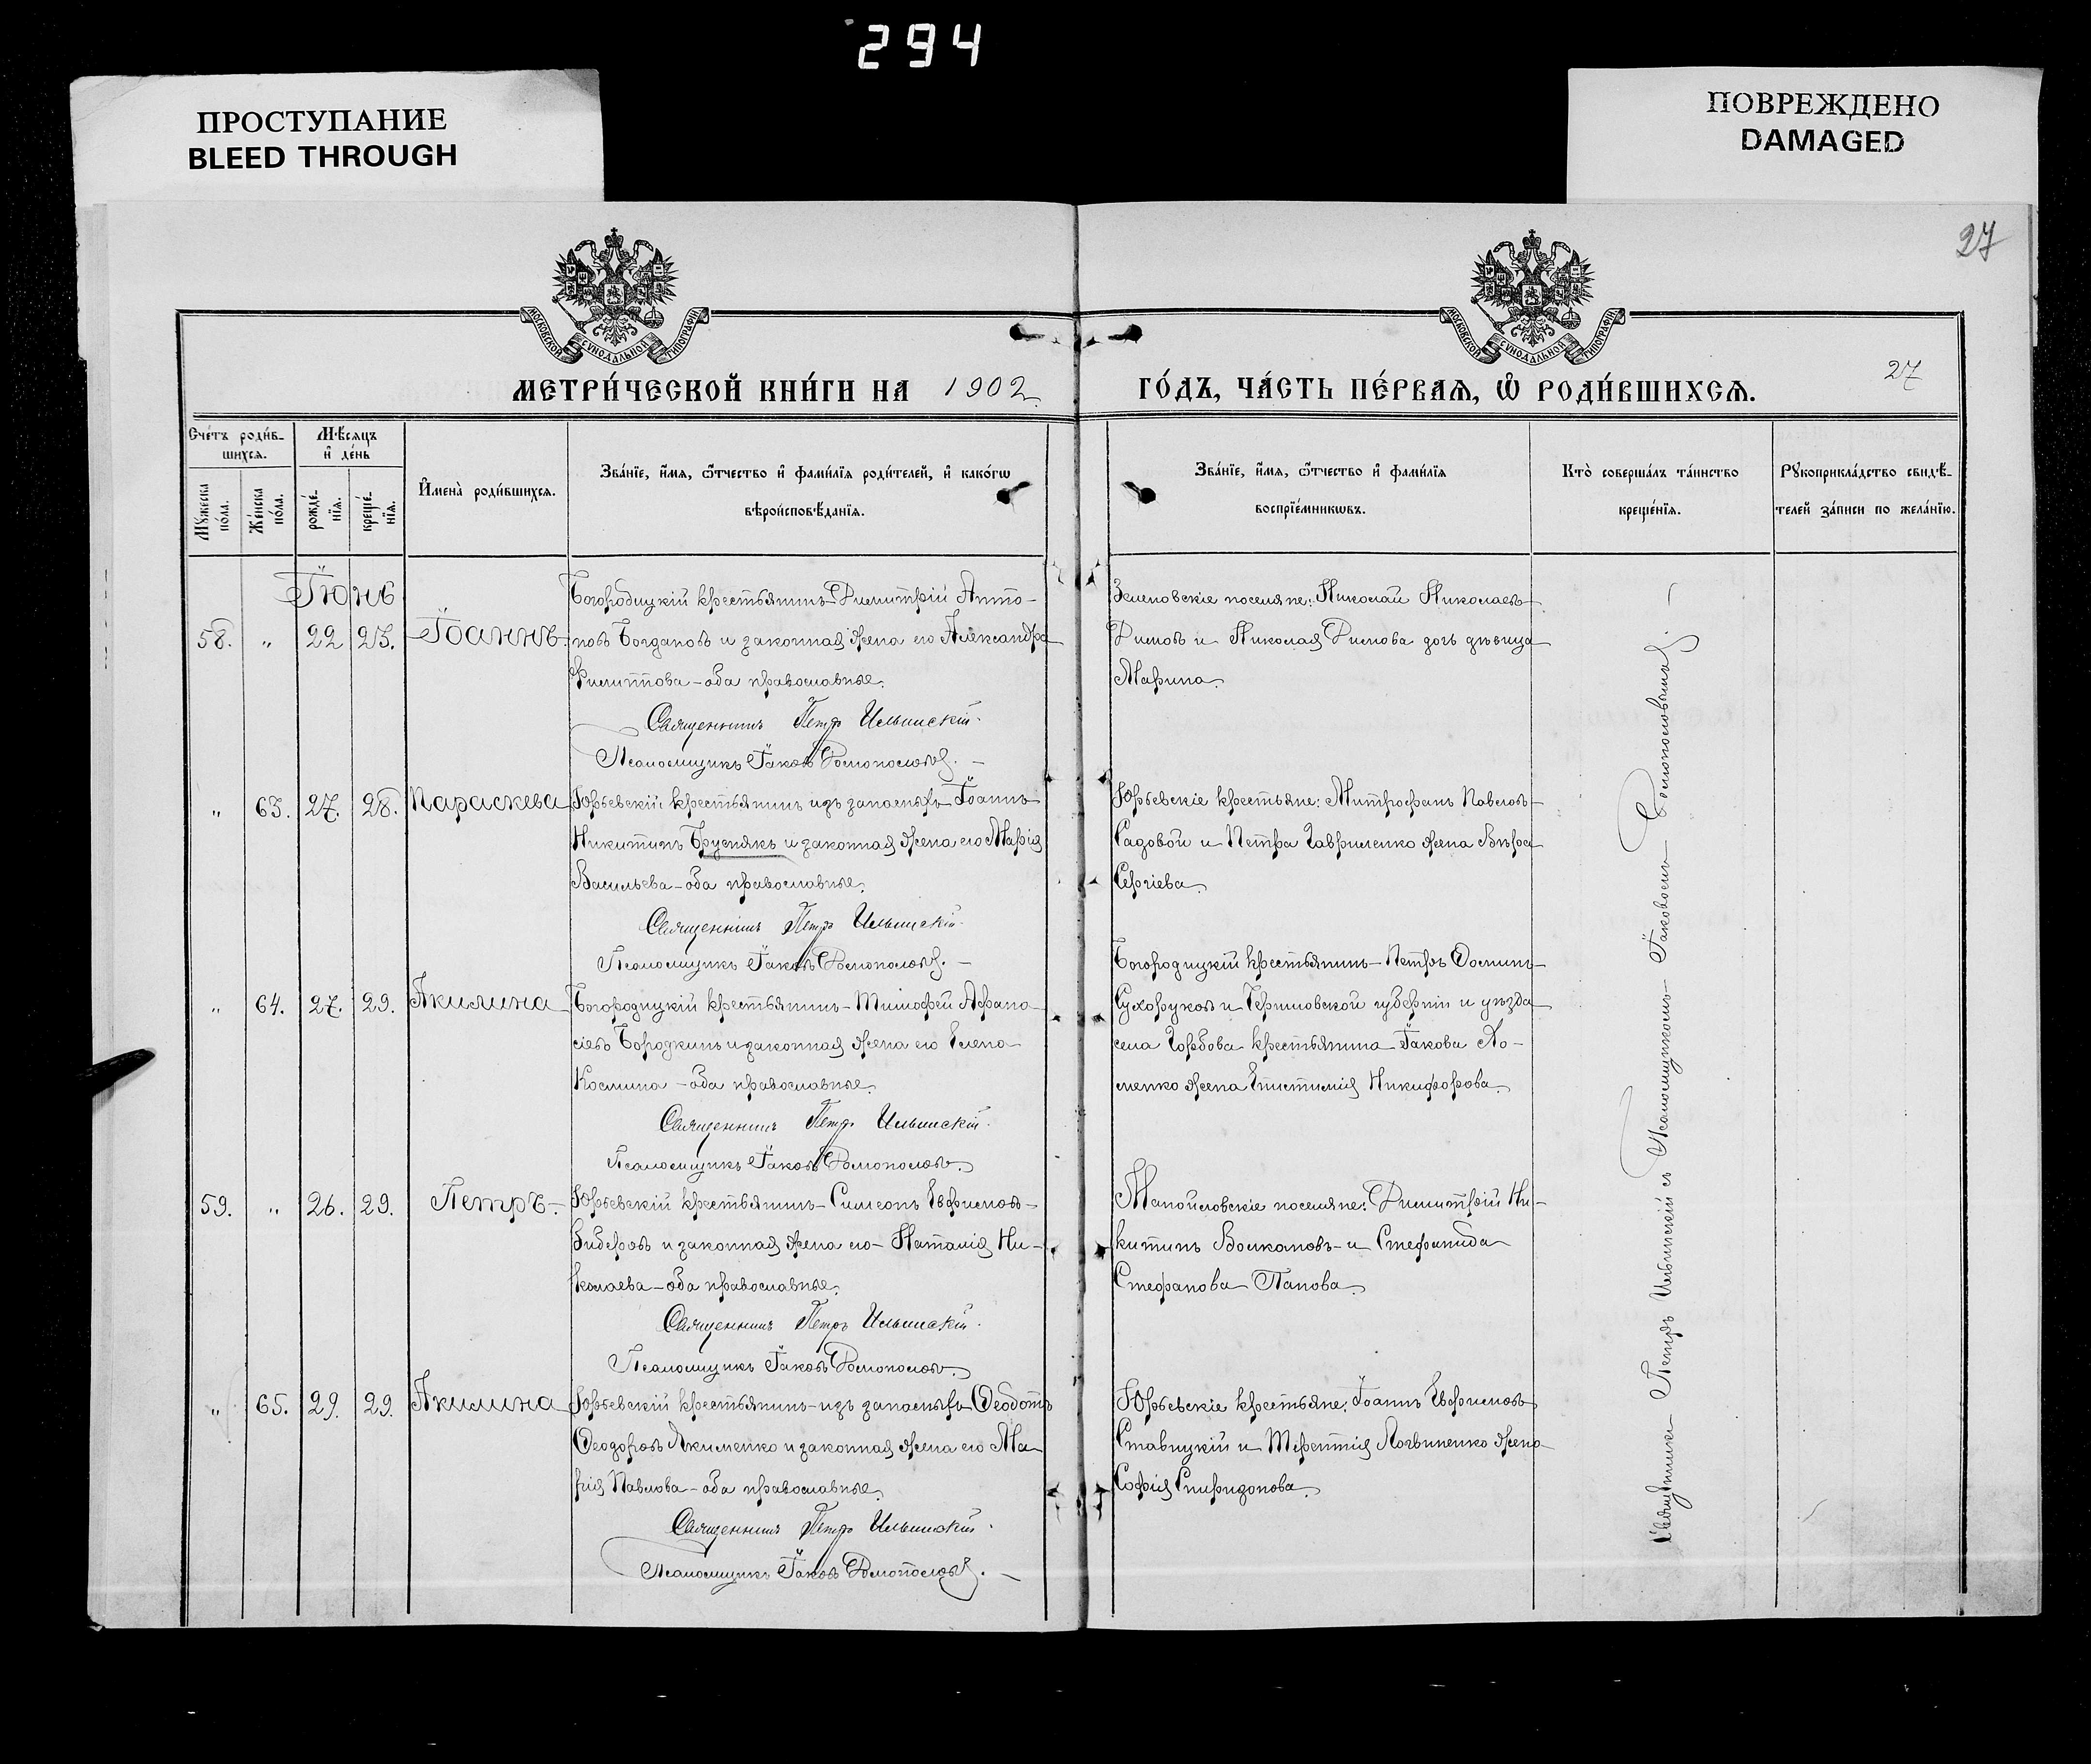 294
ПРОСТУПАНИЕ
BLEED THROUGH
ПОВРЕЖДЕНО
DAMAGED
27
МОСКОВСКОЙ СѴНОДАЛЬНОЙ ТИПОГРАФІИ
МОСКОВСКОЙ СѴНОДАЛЬНОЙ ТИПОГРАФІИ
МЕТРИ́ЧЕСКОЙ КНИ́ГИ НА 1902
ГО́ДЪ, ЧА́СТЬ ПЕ́РВАѦ, Ѽ РОДИ́ВШИХСѦ.
27
Счéтъ роди́в-
шихсѧ.
Мꙋжеска по́ла.
Же́нска по́ла.
Мѣ́сѧцъ
и҆ де́нь
рожде́-
нїѧ.
креще́-
нїѧ.
И҆мена̀ роди́вшихсѧ.
Зва́нїе, и҆́мѧ, ѻ҆́тчество и҆ фами́лїѧ роди́телей, и҆ како́гѡ
вѣроисповѣ́данїѧ.
Зва́нїе, и҆́мѧ, ѻ҆́тчество и҆ фами́лїѧ
воспрїе́мникѡвъ.
Кто̀ соверша́лъ та́инство
креще́нїѧ.
Рꙋкоприкла́дство свидѣ́-
телей за́писи по жела́нїю.
Іюнь
58. " 22 23. Іоаннъ.
Богородицкій крестьянинъ Димитрій Анто-
новъ Богдановъ и законная жена его Александра
Филиппова – оба православные.
Священникъ Петръ Ильинскій.
Псаломщикъ Іаковъ
Зеленовскіе поселяне: Николай Николаевъ
Димовъ и Николая Димова дочь дѣвица
Марина.
" 63. 27. 28. Параскева
Юрьевскій крестьянинъ изъ запасныхъ Іоаннъ
Никитинъ Бруснякъ и законная жена его Марія
Васильева – оба православные.
Священникъ Петръ Ильинскій.
Псаломщикъ Іаковъ
Юрьевскіе крестьяне: Митрофанъ Павловъ
Садовой и Петра Гавриленко жена Вѣра
Сергіева.
" 64. 27. 29. Акилина
Богородицкій крестьянинъ – Тимофей Афана-
сіевъ Бородкинъ и законная жена его Елена
Космина – оба православные.
Священникъ Петръ Ильинскій.
Псаломщикъ Іаковъ
Богородицкій крестьянинъ – Петръ Фоминъ
Сухоруковъ и Черниговской губерніи и уѣзда
села Горбова крестьянина Іакова Хо-
менко жена Епистимія Никифорова.
59. " 26. 29. Петръ.
Юрьевскій крестьянинъ – Симеонъ Евфимовъ
и законная жена его – Наталія Ни-
колаева – оба православные.
Священникъ Петръ Ильинскій.
Псаломщикъ Іаковъ
Манойловскіе поселяне: Димитрій Ни-
китинъ Волкановъ – и Стефанида
Стефанова Панова.
" 65. 29. 29. Акилина
Юрьевскій крестьянинъ – изъ запасныхъ Ѳеодотъ
Ѳеодоровъ Якименко и законная жена его Ма-
рія Павлова – оба православные.
Священникъ Петръ Ильинскій.
Псаломщикъ Іаковъ
Юрьевскіе крестьяне: Іоаннъ Евфимовъ
Ставицкій и Терентія Логвиненко жена
Софія Спиридонова.
Священникъ Петръ Ильинскій съ Псаломщикомъ Іаковомъ